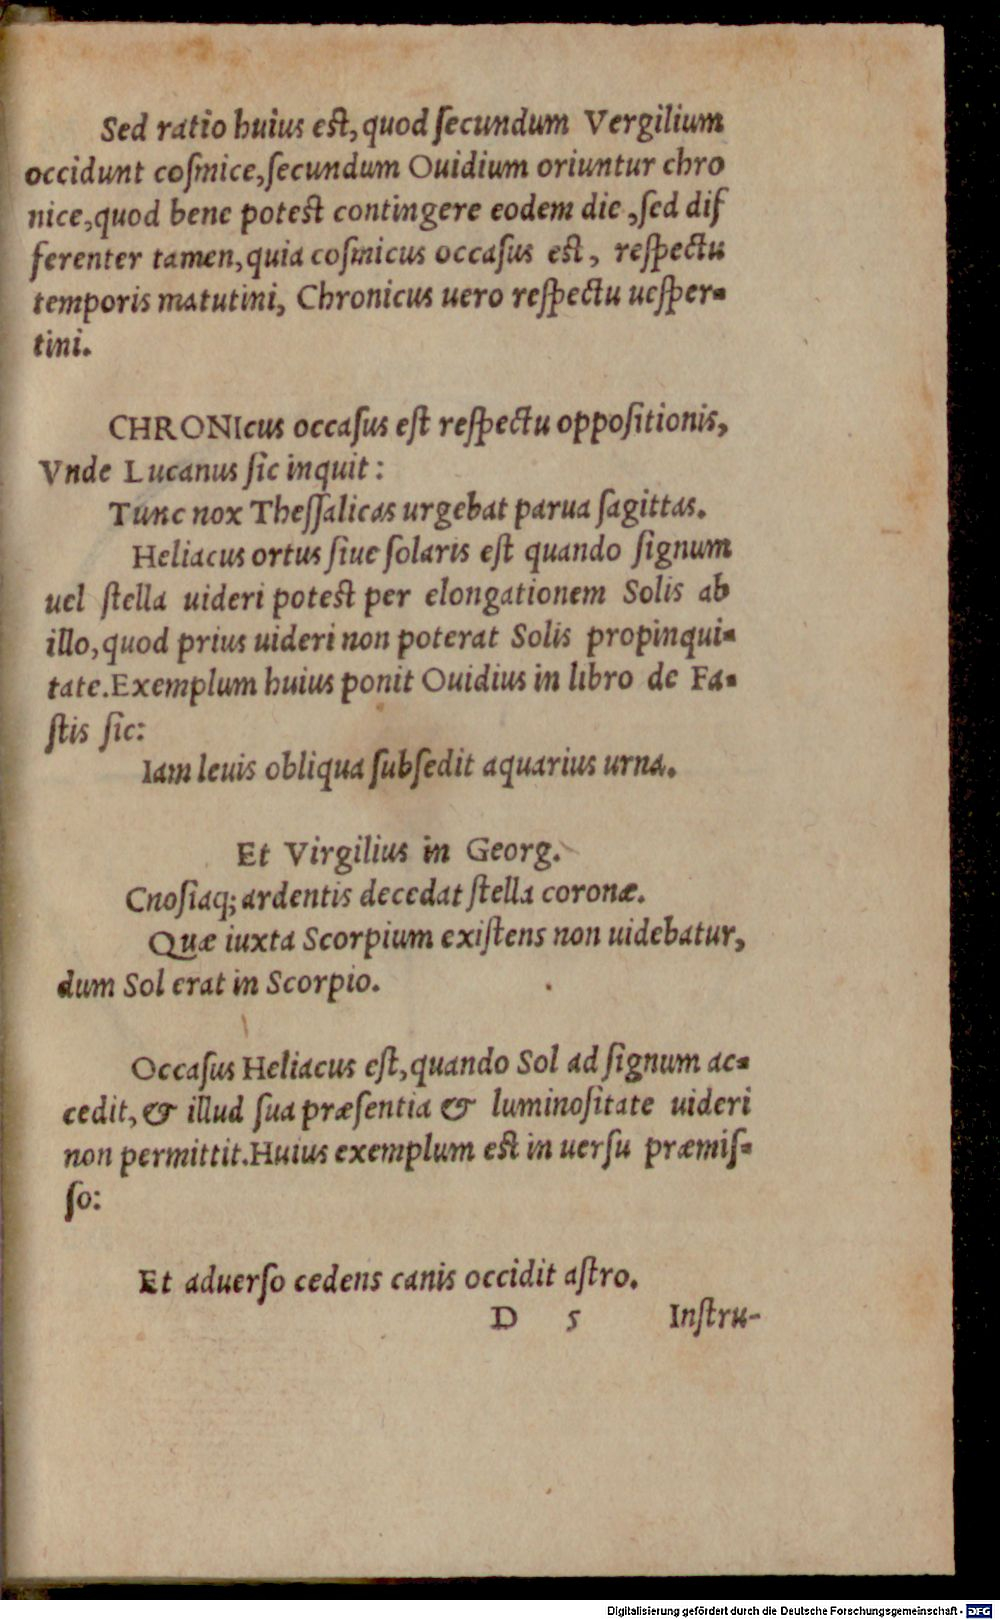 Sed ratio huius est, quod ſecundum Vergilium
occidunt coſmice, ſecundum Ouidium oriuntur chro
nice, quod bene potest contingere eodem die, ſed dif
ferenter tamen, quia coſmicus occaſus est, reſpectu
temporis matutini, Chronicus uero reſpectu ueſper-
tini.
CHRONIcus occaſus eſt reſpectu oppoſitionis,
Vnde Lucanus ſic inquit:
Tunc nox Theſſalicas urgebat parua ſagittas.
Heliacus ortus ſiue ſolaris eſt quando ſignum
uel ſtella uideri potest per elongationem Solis ab
illo, quod prius uideri non poterat Solis propinqui-
tate. Exemplum huius ponit Ouidius in libro de Fa-
ſtis ſic:
Iam leuis obliqua ſubſedit aquarius urna.
Et Virgilius in Georg.
Cnoſiaq; ardentis decedat ſtella coronæ.
Quæ iuxta Scorpium exiſtens non uidebatur,
dum Sol erat in Scorpio.
Occaſus Heliacus eſt, quando Sol ad ſignum ac-
cedit, & illud ſua præſentia & luminoſitate uideri
non permittit. Huius exemplum est in uerſu præmiſ-
ſo:
Et aduerſo cedens canis occidit aſtro.
D 5 Inſtru-
Digitalisierung gefördert durch die Deutsche Forschungsgemeinschaft - DFG